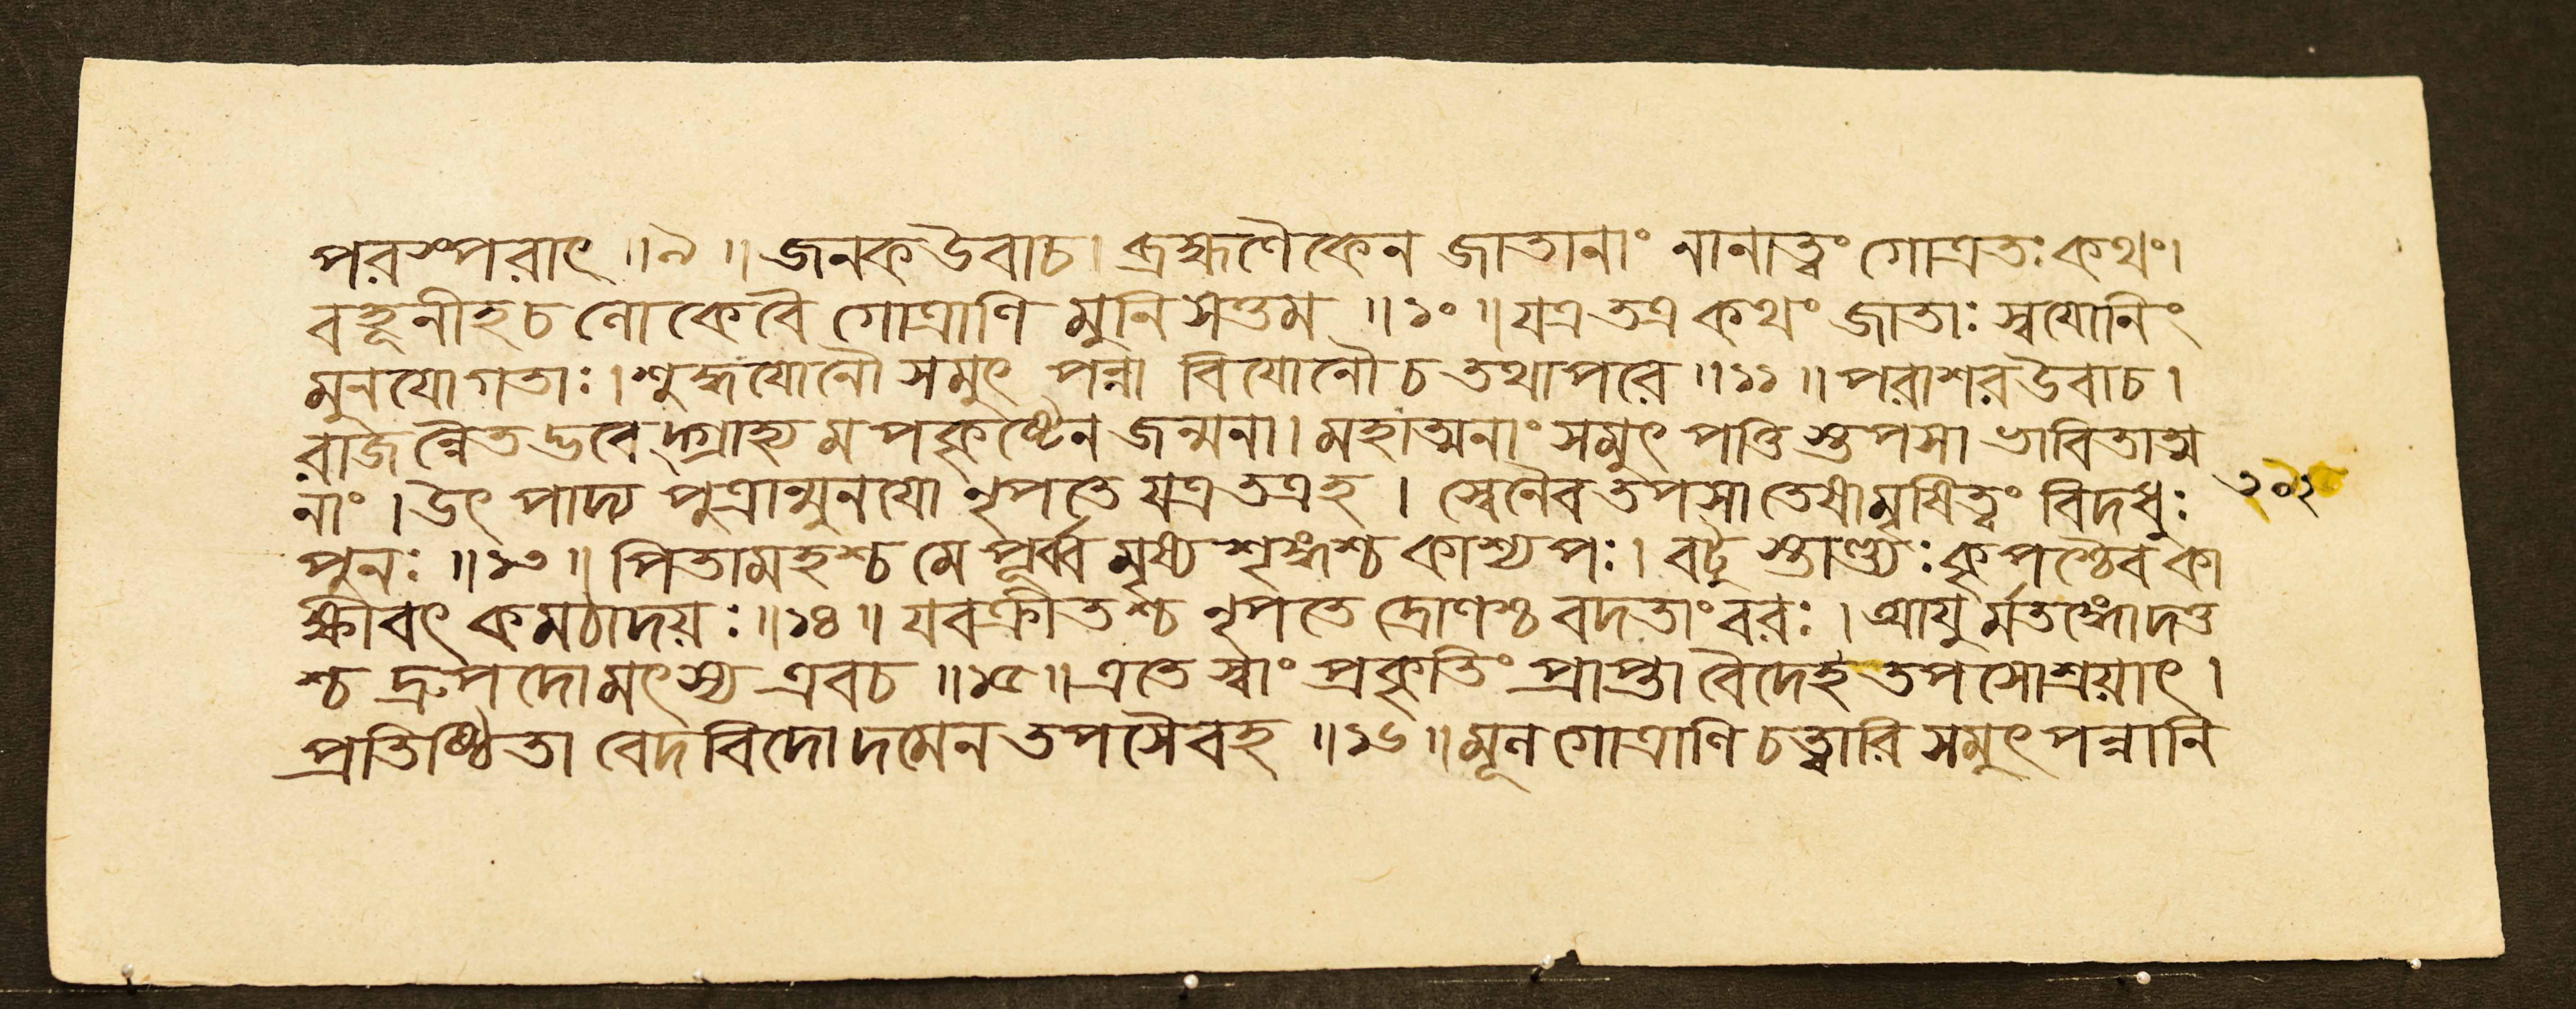 পরস্পরাৎ ॥৯॥ জনক উবাচ। ব্রহ্মণৈকেন জাতানাং নানাত্বং গোত্রতঃ কথং।
বহূনীহ চ লোকে বৈ গোত্রাণি মুনিসত্তম ॥১০॥ যত্র তত্র কথং জাতাঃ স্বযোনিং
মুনযো গতাঃ। শুদ্ধযোনৌ সমুৎপন্না বিযোনৌ চ তথাপরে ॥১১॥ পরাশর উবাচ।
রাজন্নৈতদ্ভবেদ্গ্রাহ্যমপকৃষ্টেন জন্মনা। মহাত্মনাং সমুৎপত্তিস্তপসা ভাবিতাত্ম
নাং। উৎপাদ্য পুত্রান্মুনযো নৃপতে যত্র তত্র হ। স্বেনৈব তপসা তেষামৃষিত্বং বিদধুঃ
২০২
পুনঃ ॥১৩॥ পিতামহশ্চ মে পূর্ব্বমৃষ্যশৃঙ্গশ্চ কাশ্যপঃ। বটুস্তাণ্ড্যঃ কৃপশ্চৈব কা
ক্ষীবৎ কমঠাদয়ঃ ॥১৪॥ যবক্রীতশ্চ নৃপতে দ্রোণশ্চ বদতাং বরঃ। আযুর্মতঙ্গো দত্ত
শ্চ দ্রুপদো মৎস্য এব চ ॥১৫॥ এতে স্বাং প্রকৃতিং প্রাপ্তা বৈদেহ তপসোশ্রয়াৎ।
প্রতিষ্ঠিতা বেদবিদো দমেন তপসৈব হ ॥১৬॥ মূলগোত্রাণি চত্বারি সমুৎপন্নানি